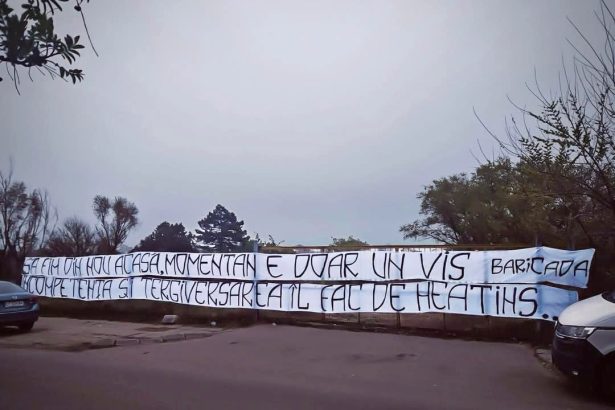 SĂ FIM DIN NOU ACASĂ, MOMENTAN E DOAR UN VIS BARICADA
COMPETENȚA ȘI TERGIVERSAREA ÎL FAC DE NEATINS...